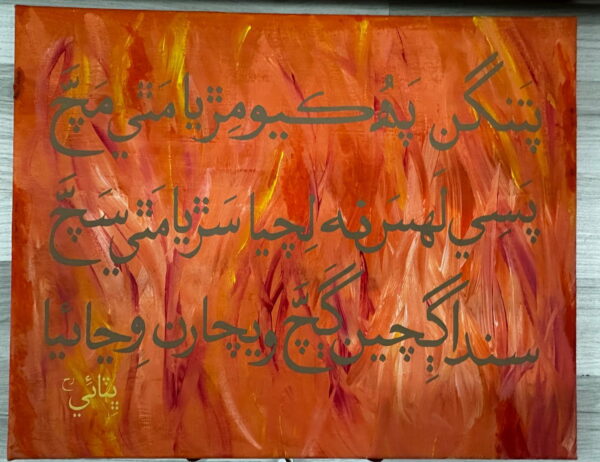 پَتنگن پَھُ ڪيو مِڙيا مَٿي مَچَّ
پَسِي لَهسَ نه لِچيا سَڙيا مَٿي سَچَّ
سندا ڳِچين ڳَچَّ ويچارن وِڃائيا
ڀٽائي رح